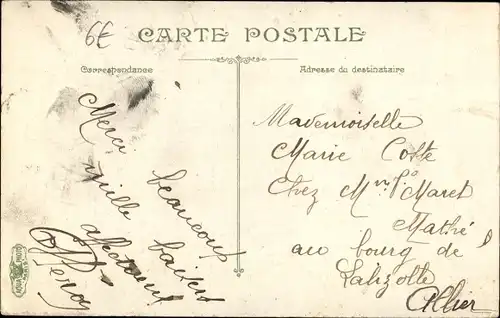 6€
CARTE POSTALE
Correspondance
Adresse du destinataire
Merci beaucoup
mille baisers
affectueux
Mademoiselle
Marie Coste
Chez Mr Maret
Mathé
au bourg de
Lalizolle
Allier